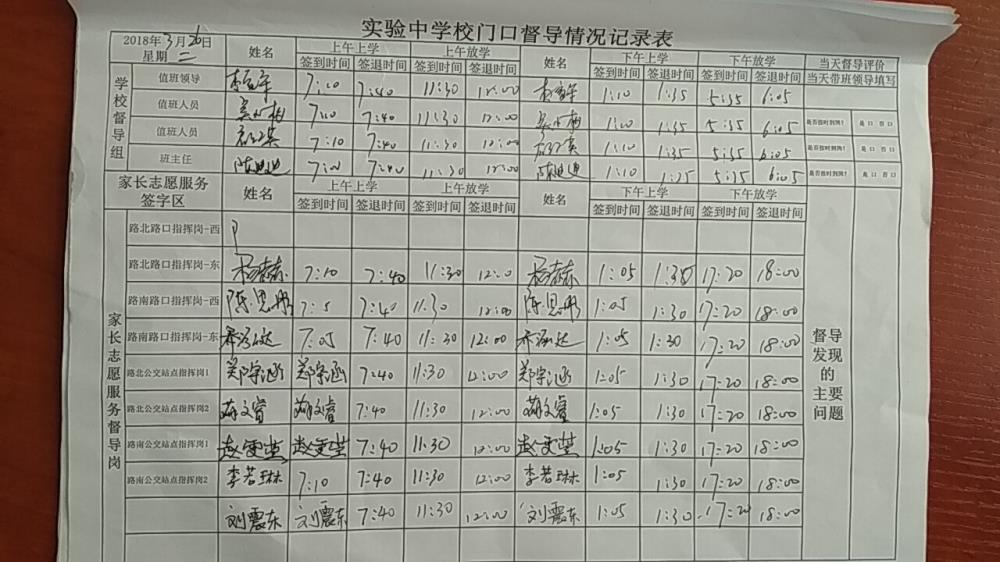 实验中学校门口督导情况记录表
2018年3月26日
星期二 姓名 上午上学 上午放学 姓名 下午上学 下午放学 当天督导评价
签到时间 签退时间 签到时间 签退时间 签到时间 签退时间 签到时间 签退时间 当天带班领导填写
学校督导组
值班领导 7:20 7:40 11:30 12:00 1:10 1:35 5:35 6:05
值班人员 7:20 7:40 11:30 12:00 1:20 1:35 5:35 6:05 是否按时到岗? 是口 否口
值班人员 7:10 7:40 11:30 12:00 1:10 1:35 5:35 6:05 是否按时到岗? 是口 否口
班主任 7:20 7:40 11:30 12:00 1:10 1:35 5:35 6:05 是否按时到岗? 是口 否口
家长志愿服务签字区 姓名 上午上学 上午放学 姓名 下午上学 下午放学
签到时间 签退时间 签到时间 签退时间 签到时间 签退时间 签到时间 签退时间
家长志愿服务督导岗
路北路口指挥岗-西
路北路口指挥岗-东 7:10 7:40 11:30 12:0 1:05 1:35 17:20 18:00
路南路口指挥岗-西 陈思彤 7:5 7:40 11:30 12:00 陈思彤 1:05 1:30 17:20 18:00
路南路口指挥岗-东 7:05 7:40 11:30 12:00 1:05 1:30 17:20 18:00
路北公交站点指挥岗1 郑宇涵 郑宇涵 7:40 11:30 12:00 郑宇涵 1:05 1:30 17:20 18:00
路北公交站点指挥岗2 7:40 11:30 12:00 1:05 1:30 17:20 18:00
路南公交站点指挥岗1 7:40 11:30 12:00 1:05 1:30 17:20 18:00
路南公交站点指挥岗2 李若琳 7:10 7:40 11:30 12:00 李若琳 1:05 1:30 17:20 18:00
刘震东 刘震东 7:40 11:30 12:00 刘震东 1:05 1:30 17:20 18:00
督导发现的主要问题